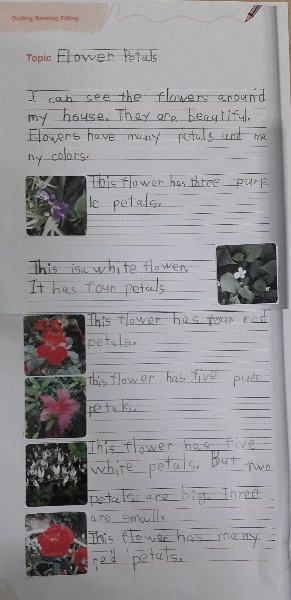 Drafting, Revising, Editing.
Topic Flower Petals
I can see the flowers around
my house. They are beautiful.
Flowers have many petals and ma
ny colors.
This flower has three purp
le petals.
This is a white flower.
It has four petals
This flower has four red
petals.
This flower has five pink
petals.
This flower has five
white petals. But two
petals are big. Three
are small.
This flower has many
red petals.